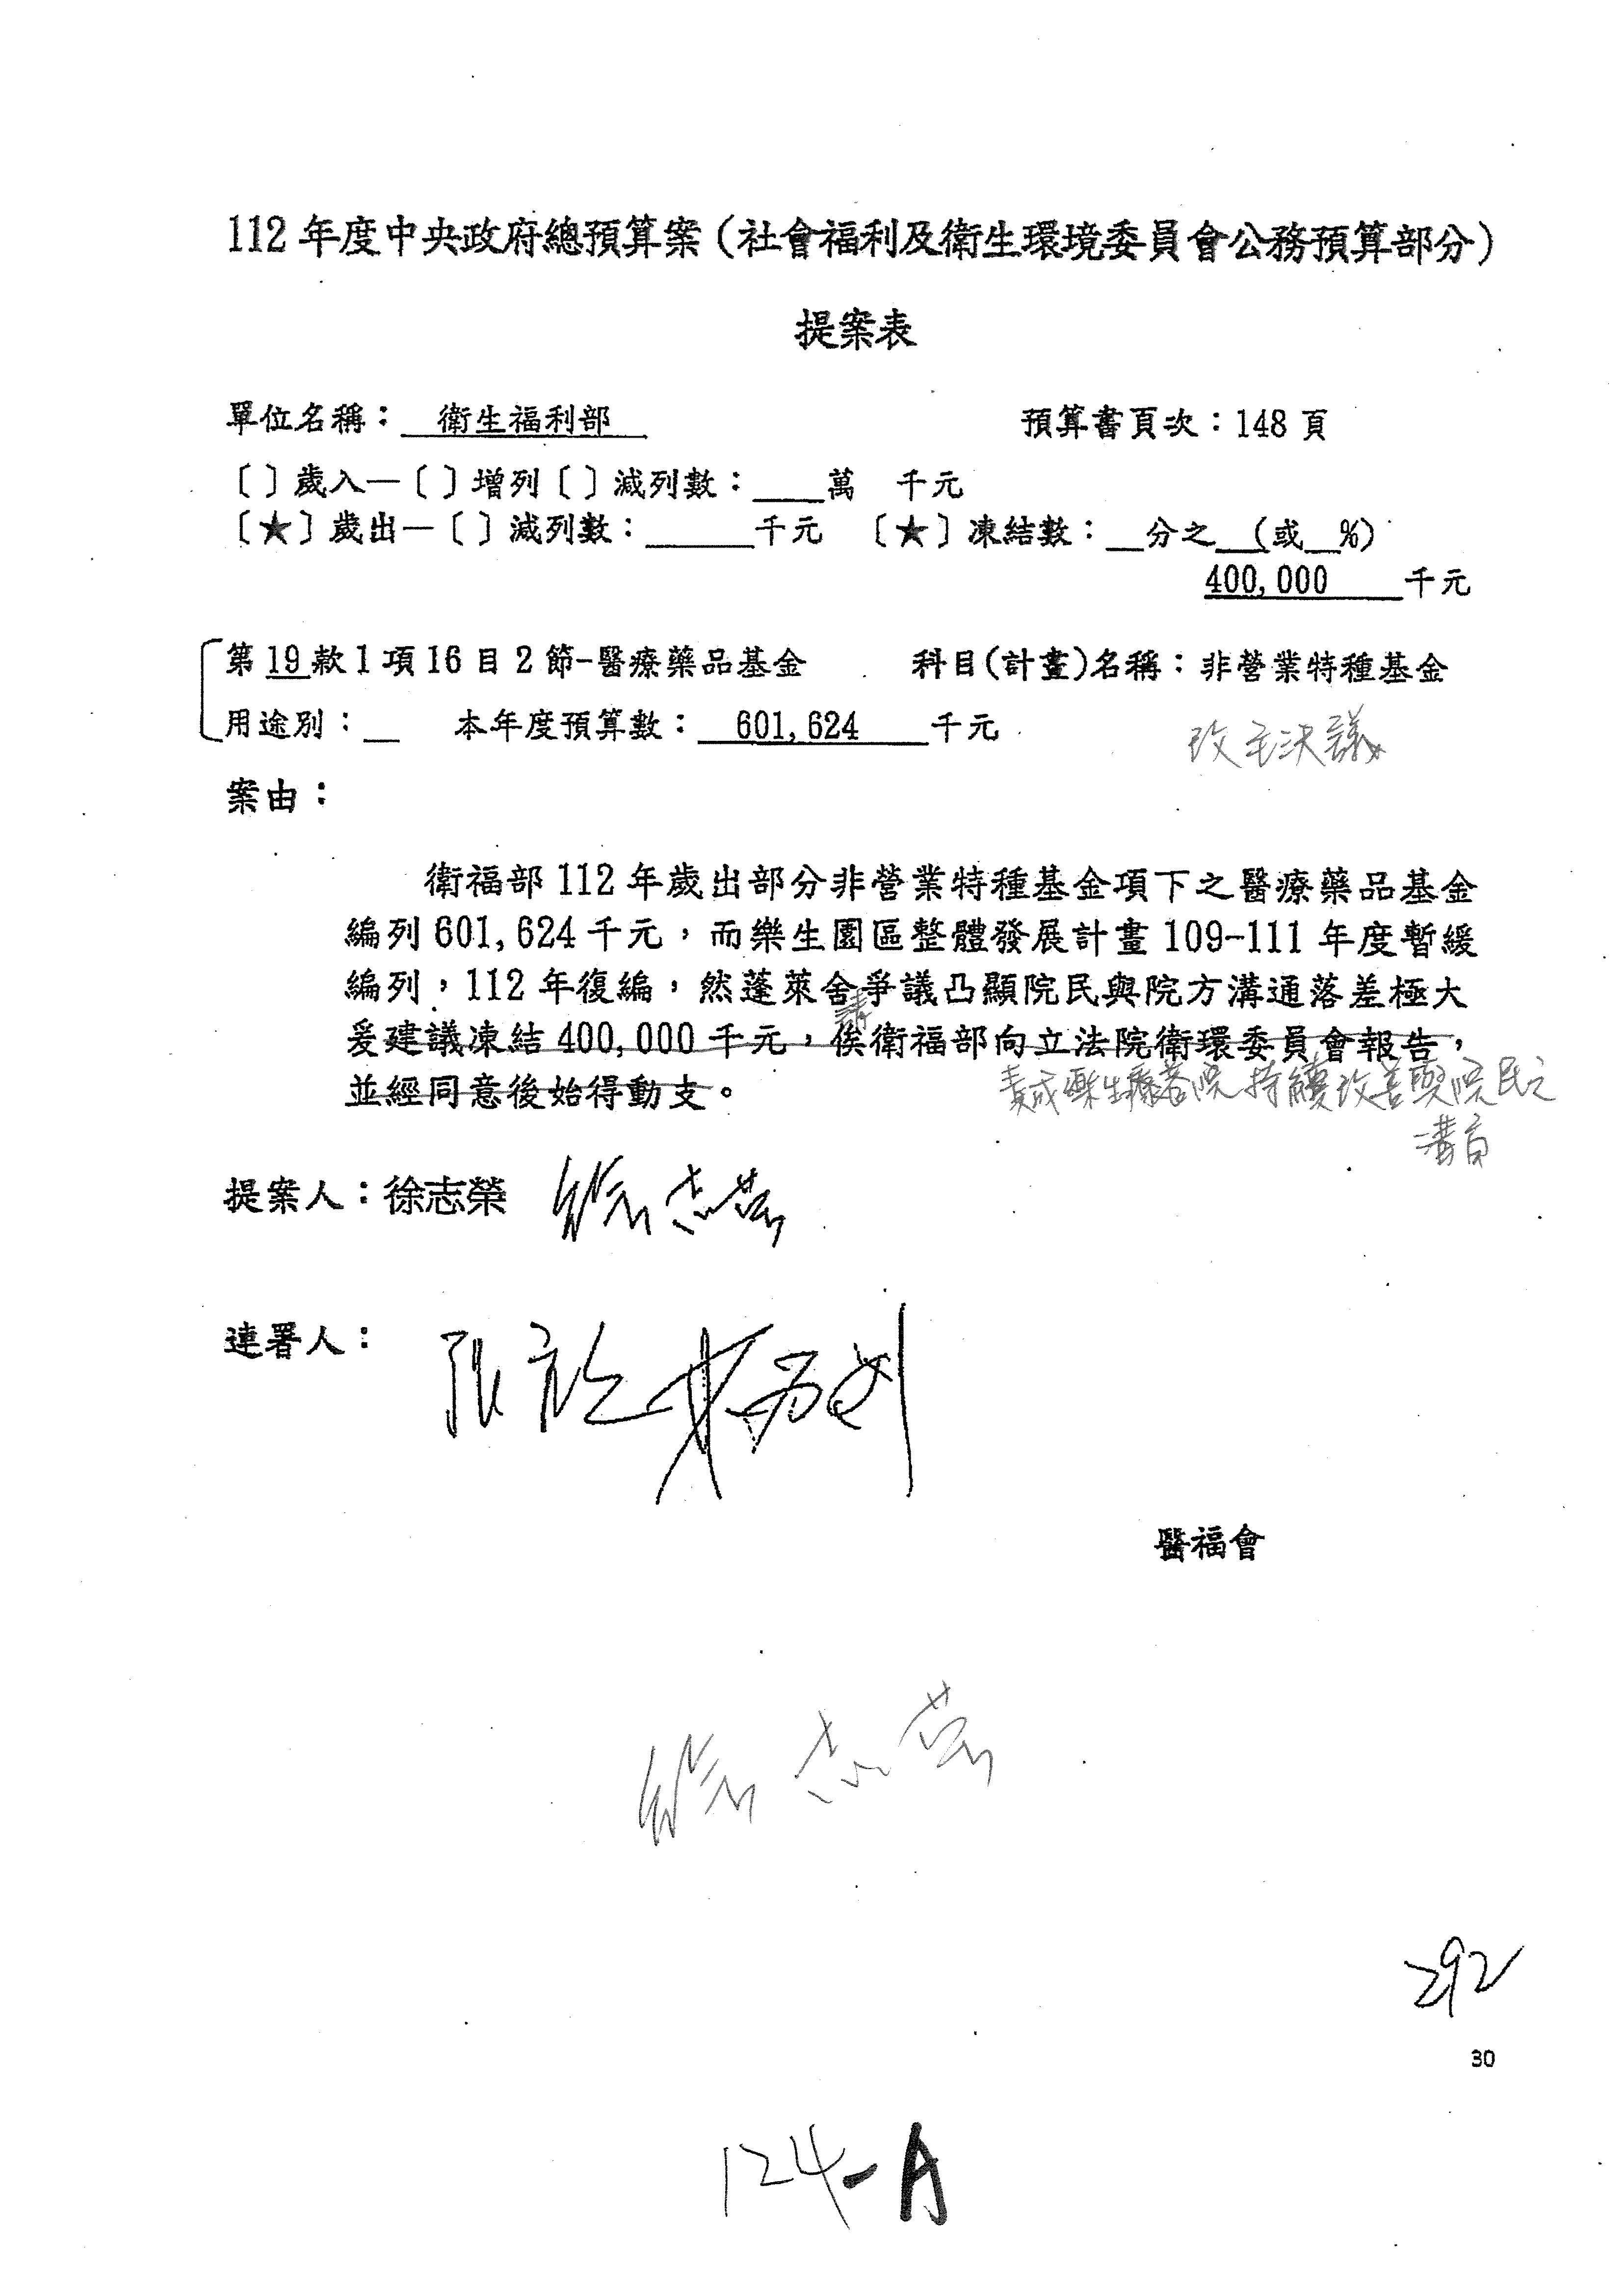 112 年度中央政府總預算案（社會福利及衛生環境委員會公務預算部分）
提案表
單位名稱：　衛生福利部　　預算書頁次：148 頁
〔 〕歲入—〔 〕增列〔 〕減列數：____萬　千元
〔★〕歲出—〔 〕減列數：______千元　〔★〕凍結數：__分之__（或__%）
400,000　千元
第 19 款 1 項 16 目 2 節-醫療藥品基金　　科目(計畫)名稱：非營業特種基金
用途別：__　本年度預算數：　601,624　千元
改主決議
案由：
衛福部 112 年歲出部分非營業特種基金項下之醫療藥品基金
編列 601,624 千元，而樂生園區整體發展計畫 109-111 年度暫緩
編列，112 年復編，然蓬萊舍爭議凸顯院民與院方溝通落差極大
請
爰建議凍結 400,000 千元，俟衛福部向立法院衛環委員會報告，
並經同意後始得動支。
責成樂生療養院持續改善與院民之
溝通
提案人：徐志榮 徐志榮
連署人：
醫福會
徐志榮
292
30
124-A